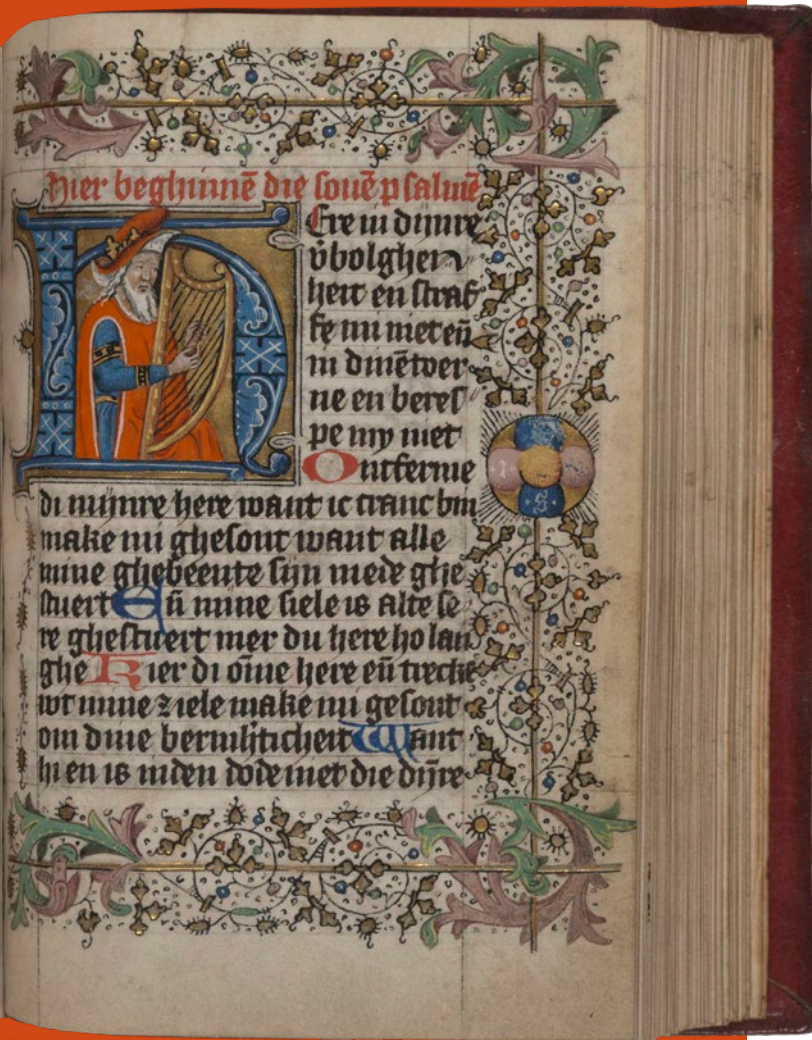 Hier beghinnē die souē psalmē
Here in dijnre
v̄bolghen
heit en straf
fe mi niet eñ
in dinē toer
ne en beres
pe my niet
Ontferme
di mijnre here want ic cranc bin
make mi ghesont want alle
mine ghebeente sijn mede ghe
stuert Eñ mine siele is alte se
re ghestuert mer du here ho lan
ghe Kier di ōme here eñ trecke
wt mine ziele make mi gesont
om dine bermhticheit Want
hi en is inden dode niet die dijre